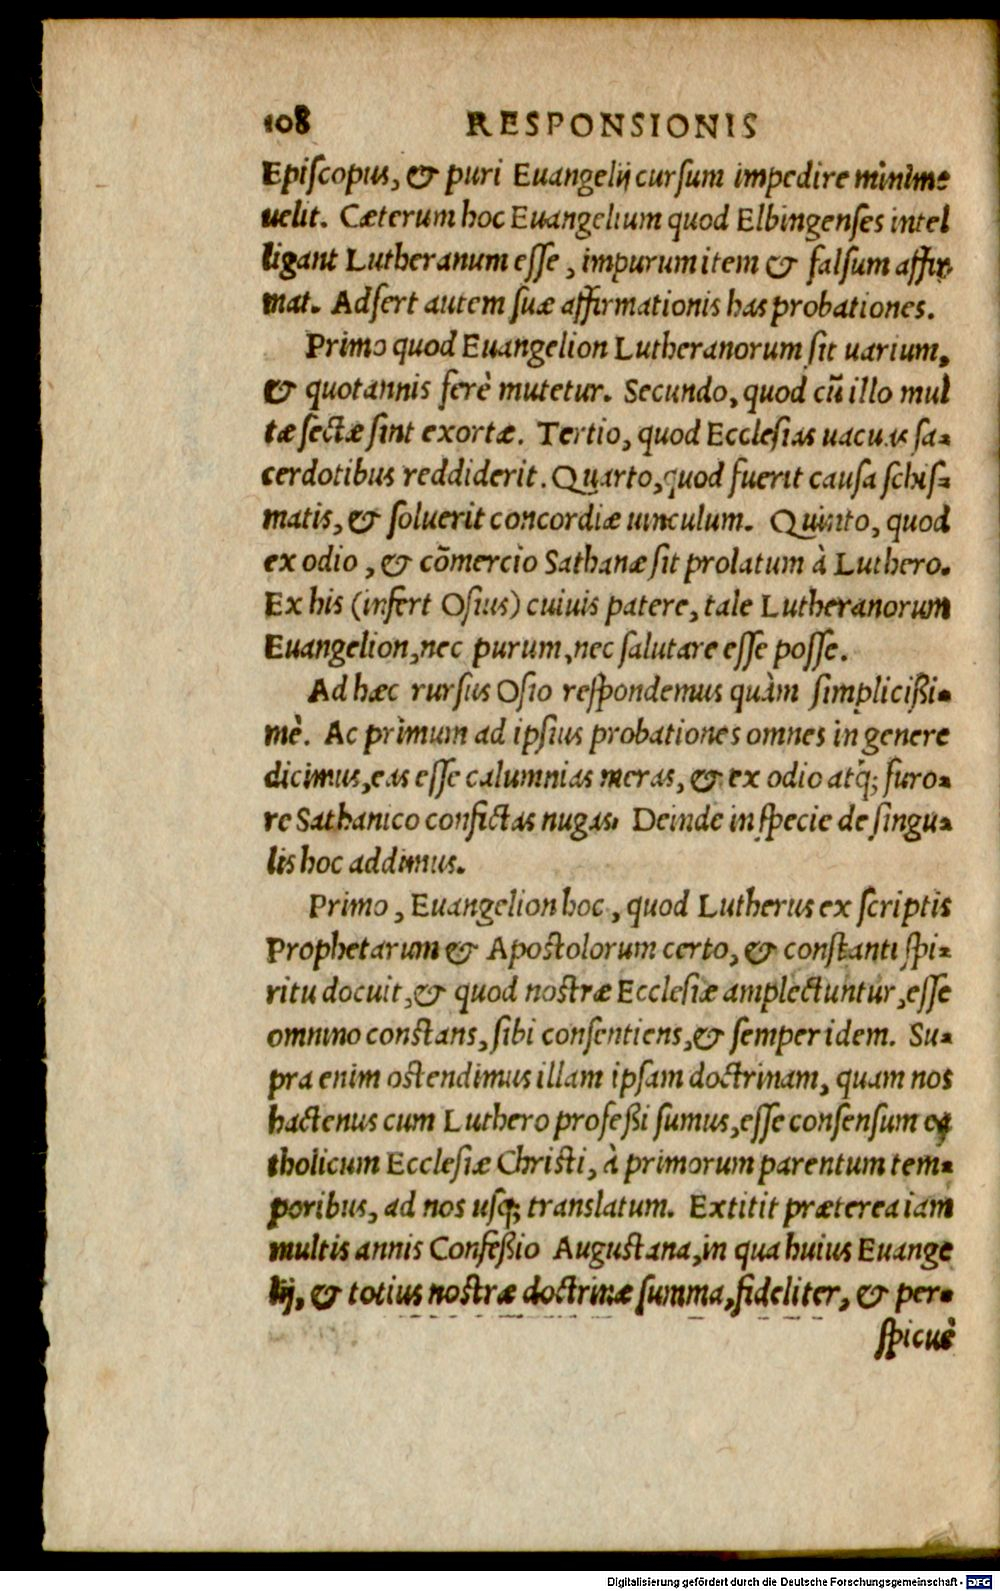 108 RESPONSIONIS
Episcopus, & puri Euangelij cursum impedire minime
uelit. Cæterum hoc Euangelium quod Elbingenses intel
ligant Lutheranum esse, impurum item & falsum affir-
mat. Adfert autem suæ affirmationis has probationes.
Primo quod Euangelion Lutheranorum sit uarium,
& quotannis ferè mutetur. Secundo, quod cũ illo mul
tæ sectæ sint exortæ. Tertio, quod Ecclesias uacuas sa-
cerdotibus reddiderit. Quarto, quod fuerit causa schis-
matis, & soluerit concordiæ uinculum. Quinto, quod
ex odio, & cõmercio Sathanæ sit prolatum à Luthero.
Ex his (infert Osius) cuiuis patere, tale Lutheranorum
Euangelion, nec purum, nec salutare esse posse.
Ad hæc rursus Osio respondemus quàm simplicißi-
mè. Ac primum ad ipsius probationes omnes in genere
dicimus, eas esse calumnias meras, & ex odio atq; furo-
re Sathanico confictas nugas. Deinde in specie de singu-
lis hoc addimus.
Primo, Euangelion hoc, quod Lutherus ex scriptis
Prophetarum & Apostolorum certo, & constanti spi-
ritu docuit, & quod nostræ Ecclesiæ amplectuntur, esse
omnino constans, sibi consentiens, & semper idem. Su-
pra enim ostendimus illam ipsam doctrinam, quam nos
hactenus cum Luthero profeßi sumus, esse consensum ca
tholicum Ecclesiæ Christi, à primorum parentum tem-
poribus, ad nos usq; translatum. Extitit præterea iam
multis annis Confeßio Augustana, in qua huius Euange
lij, & totius nostræ doctrinæ summa, fideliter, & per-
spicuè
Digitalisierung gefördert durch die Deutsche Forschungsgemeinschaft - DFG